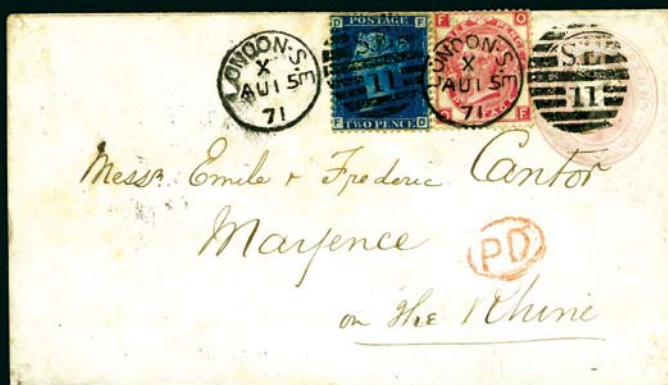 LONDON·S.E
X
AU 15
71
D F
POSTAGE
S.E.
11
TWO PENCE
F D
F O
THREE PENCE
LONDON·S.E
X
AU 15
71
O F
S.E.
11
Messrs Emile & Frederic Cantor
Mayence
PD
on the Rhine